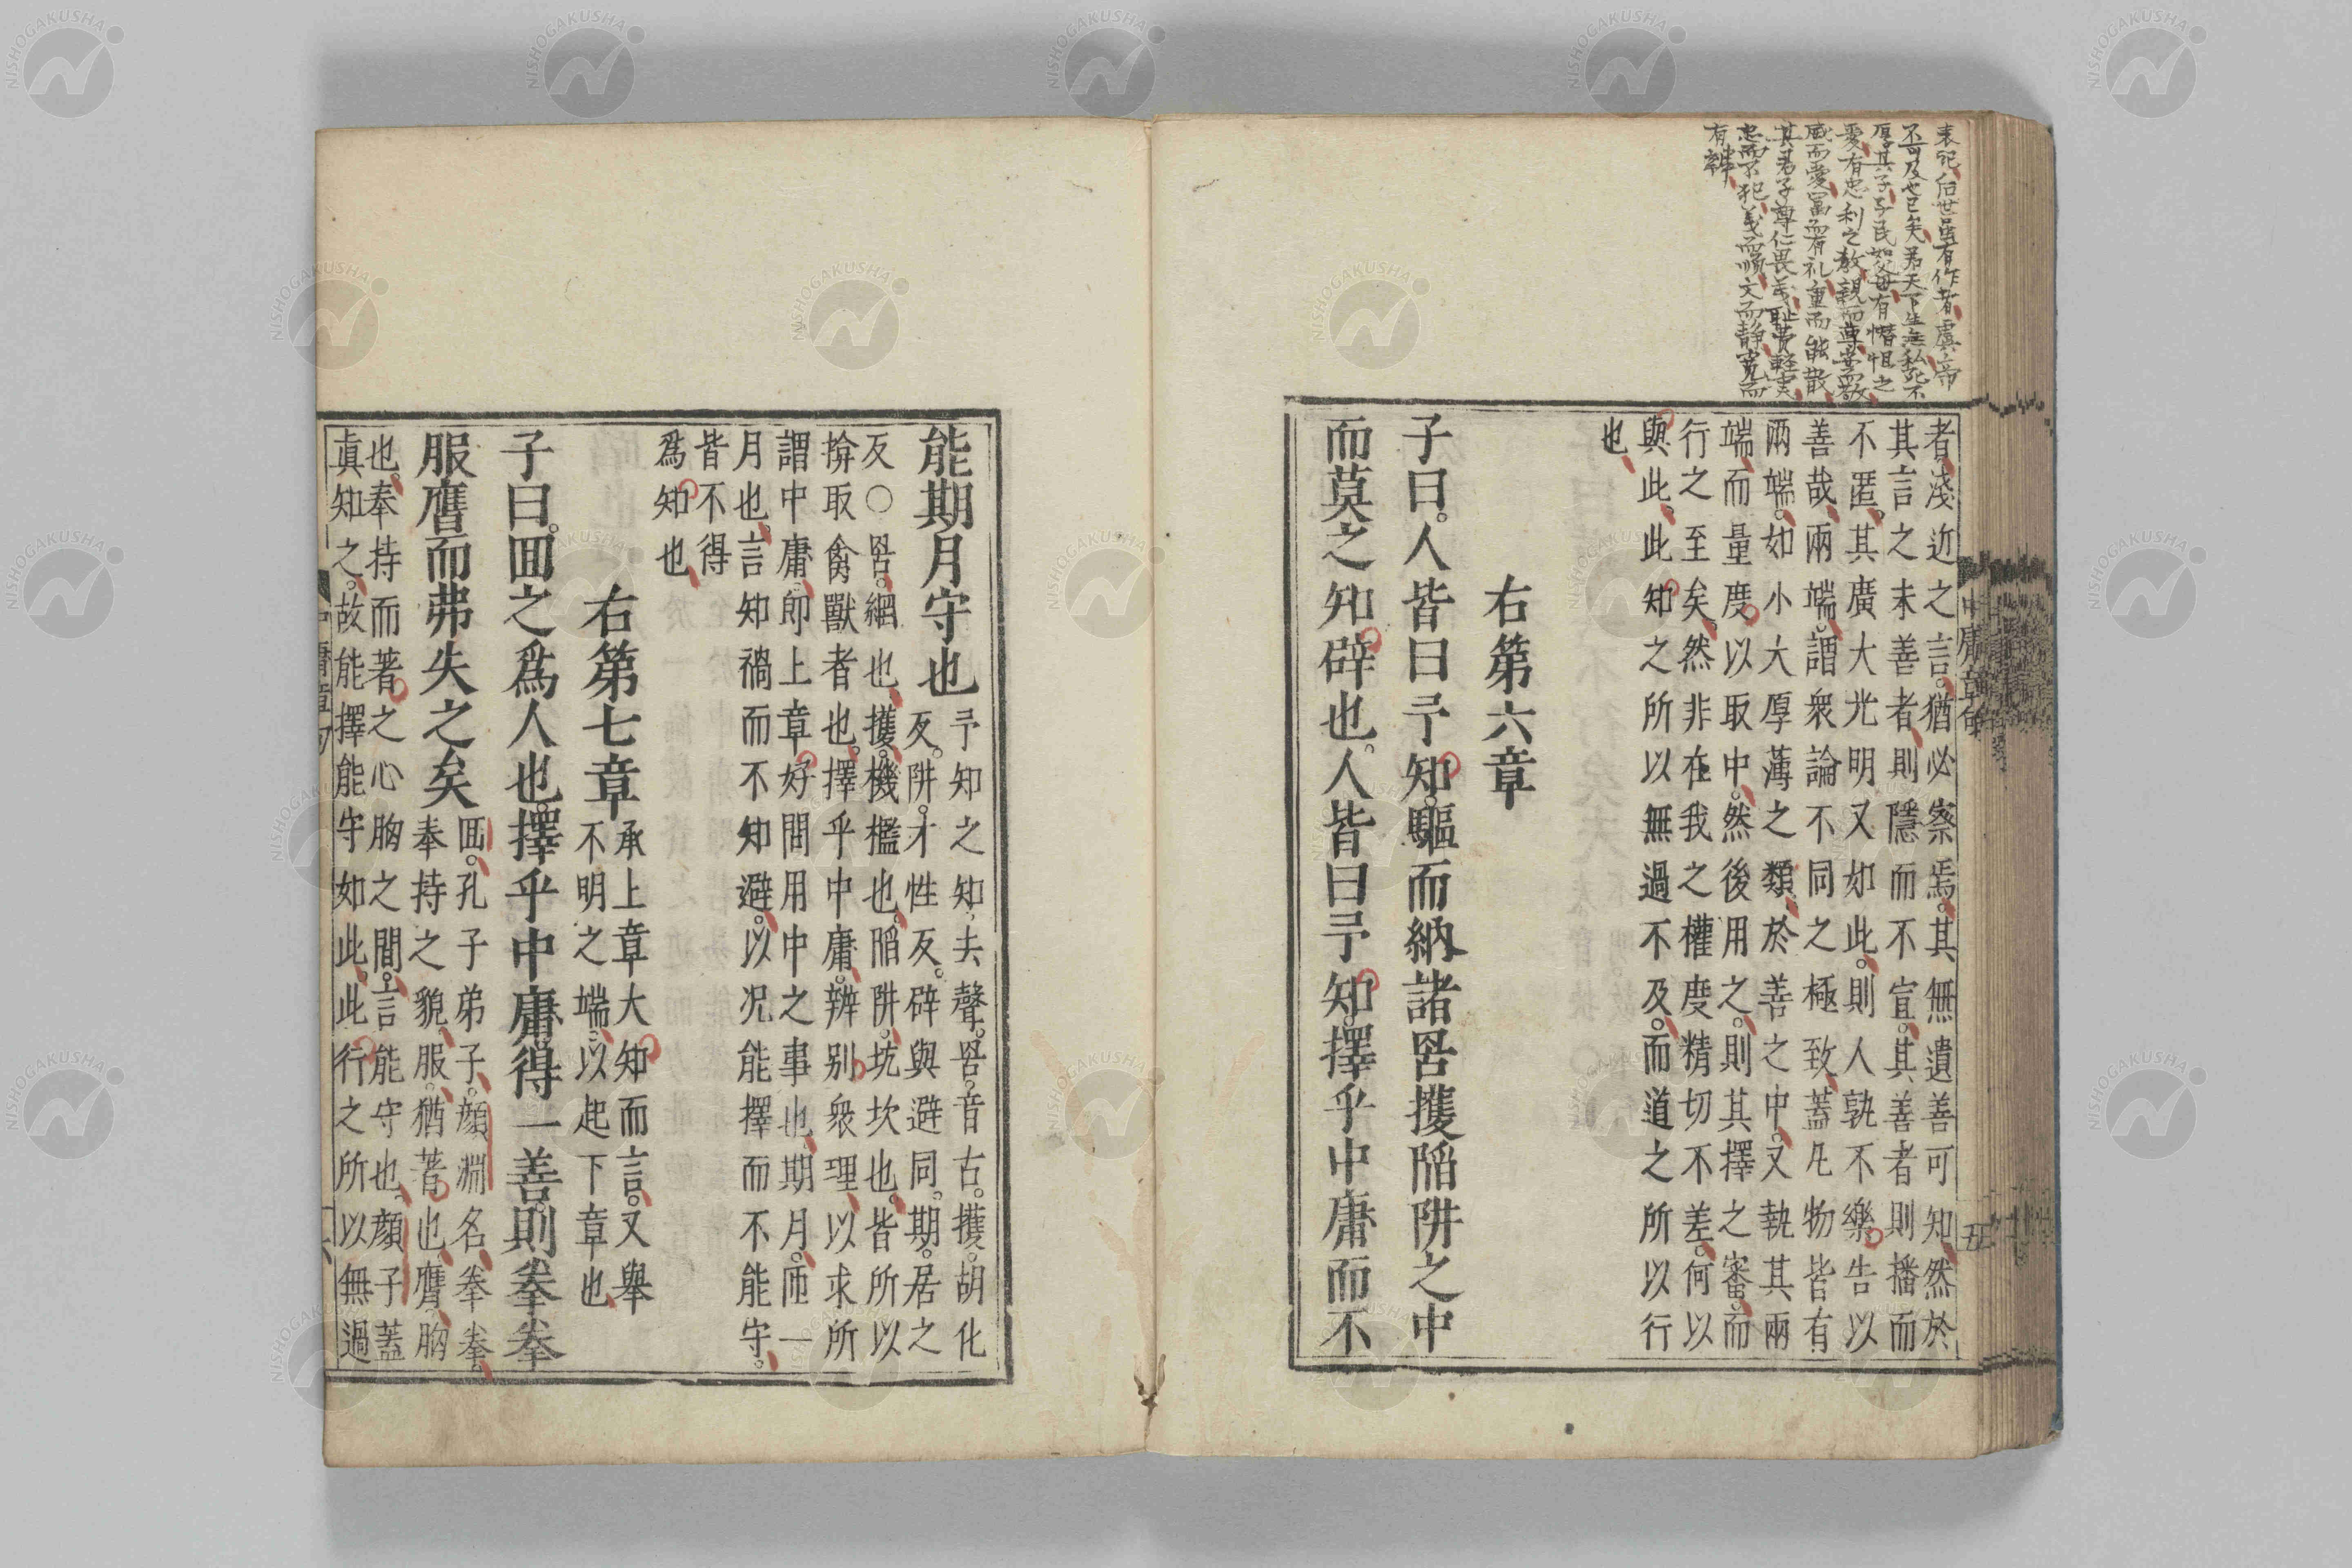 表記后世虽有作者虞帝
不可及也已矣君天下生無私死不
厚其子子民如父母有憯怛之
愛有忠利之教親而尊安而敬
威而愛冨而有礼重而能散
其君子尊仁畏義耻費軽実
忠而不犯義而順文而静寛而
有辨
者淺近之言。猶必察焉。其無遺善可知。然於
其言之未善者、則隱而不宣。其善者則播而
不匿。其廣大光明又如此。則人孰不樂告以
善哉、兩端。謂衆論不同之極致、蓋凡物皆有
兩端。如小大厚薄之類、於善之中。又執其兩
端、而量度以取中。然後用之。則其擇之審。而
行之至矣。然非在我之權度精切不差。何以
與此。此知之所以無過不及。而道之所以行
也、
右第六章
子曰。人皆曰予知。驅而納諸罟擭陷阱之中
而莫之知辟也。人皆曰予知。擇乎中庸而不
中庸章句
五
能期月守也
予知之知、去聲。罟。音古。擭。胡化
反。阱。才性反。辟與避同。期。居之
反○罟。網也、擭。機檻也。陷阱。坑坎也。皆所以
揜取禽獸者也。擇乎中庸。辨别衆理、以求所
謂中庸。即上章好問用中之事也、期月。匝一
月也。言知禍而不知避。以况能擇而不能守。
皆不得
爲知也
右第七章
承上章大知而言。又舉
不明之端、以起下章也
子曰。回之爲人也。擇乎中庸。得一善。則拳拳
服膺而弗失之矣
回。孔子弟子。顔淵名、拳拳。
奉持之貌、服。猶著也、膺。胸
也、奉持而著之心胸之間。言能守也、顔子蓋
眞知之。故能擇能守如此。此行之所以無過
中庸章句
六